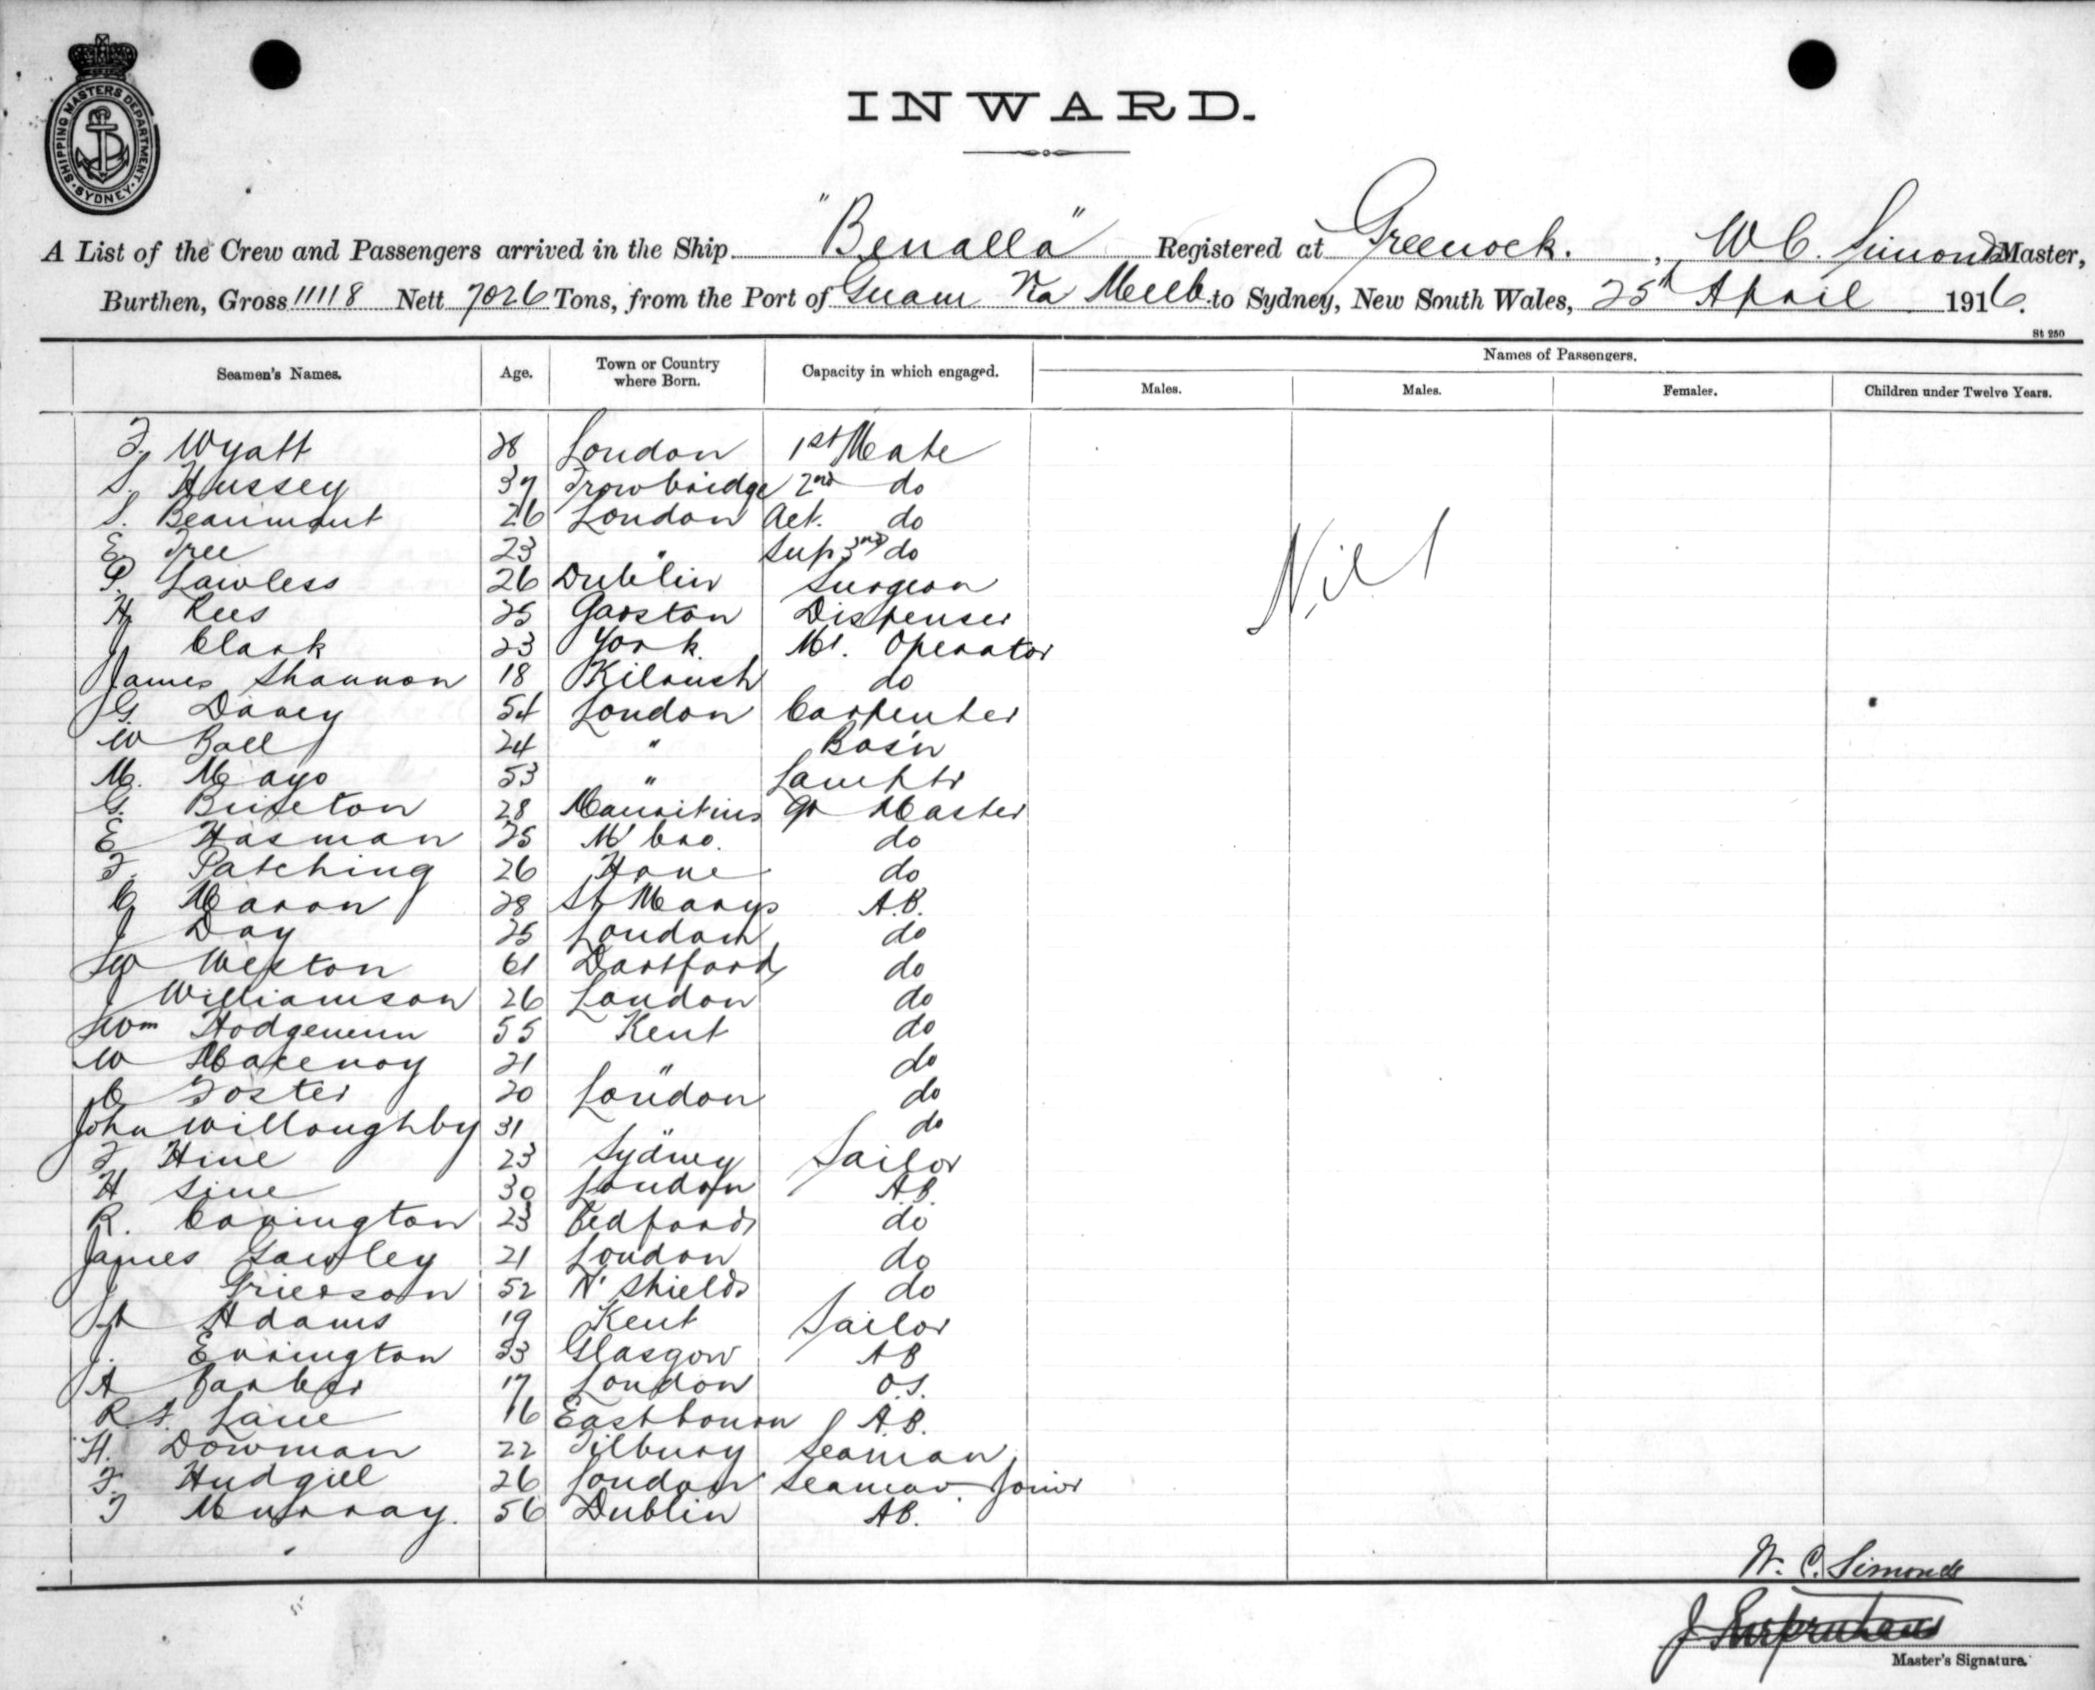 SHIPPING MASTERS DEPARTMENT · SYDNEY ·
INWARD.
A List of the Crew and Passengers arrived in the Ship "Benalla" Registered at Greenock. , W. C. Simonds Master,
Burthen, Gross 11118 Nett 7026 Tons, from the Port of Guam Via Melb. to Sydney, New South Wales, 25th April 1916.
St 250
Seamen's Names. Age. Town or Country where Born. Capacity in which engaged. Names of Passengers.
Males. Males. Females. Children under Twelve Years.
F. Wyatt 28 London 1st Mate
S. Hussey 37 Trowbridge 2nd do
S. Beaumont 26 London Act. do
E. Tree 23 " Sup 3rd do
P. Lawless 26 Dublin Surgeon
H. Rees 25 Garston Dispenser
J Clark 23 York. M1. Operator
James Shannon 18 Kilrush do
G. Davey 54 London Carpenter
W Ball 24 " Bos'n
M. Mayo 53 " Lamptr
G. Buiston 28 Mauritius Qr Master
E Hasman 25 M'bro. do
F. Patching 26 Hove do
C Maron 28 St Marys A.B.
J Day 25 London do
W Weston 61 Dartford do
J Williamson 26 London do
Wm Hodgemun 55 Kent do
W Macevoy 21 " do
C Foster 20 London do
John Willoughby 31 " do
F Hine 23 Sydney Sailor
H Sine 30 London A.B.
R. Covington 23 Bedford do
James Gawley 21 London do
J Grierson 52 N' Shields do
A Adams 19 Kent Sailor
J. Errington 33 Glasgow AB
A Barber 17 London O.S.
R F. Lane 16 Eastbourn A.B.
H. Dowman 22 Tilbury Seaman
F. Hudgill 26 London Seaman. Junior
T Murray. 56 Dublin AB.
Nil
W. C. Simonds
Master's Signature.